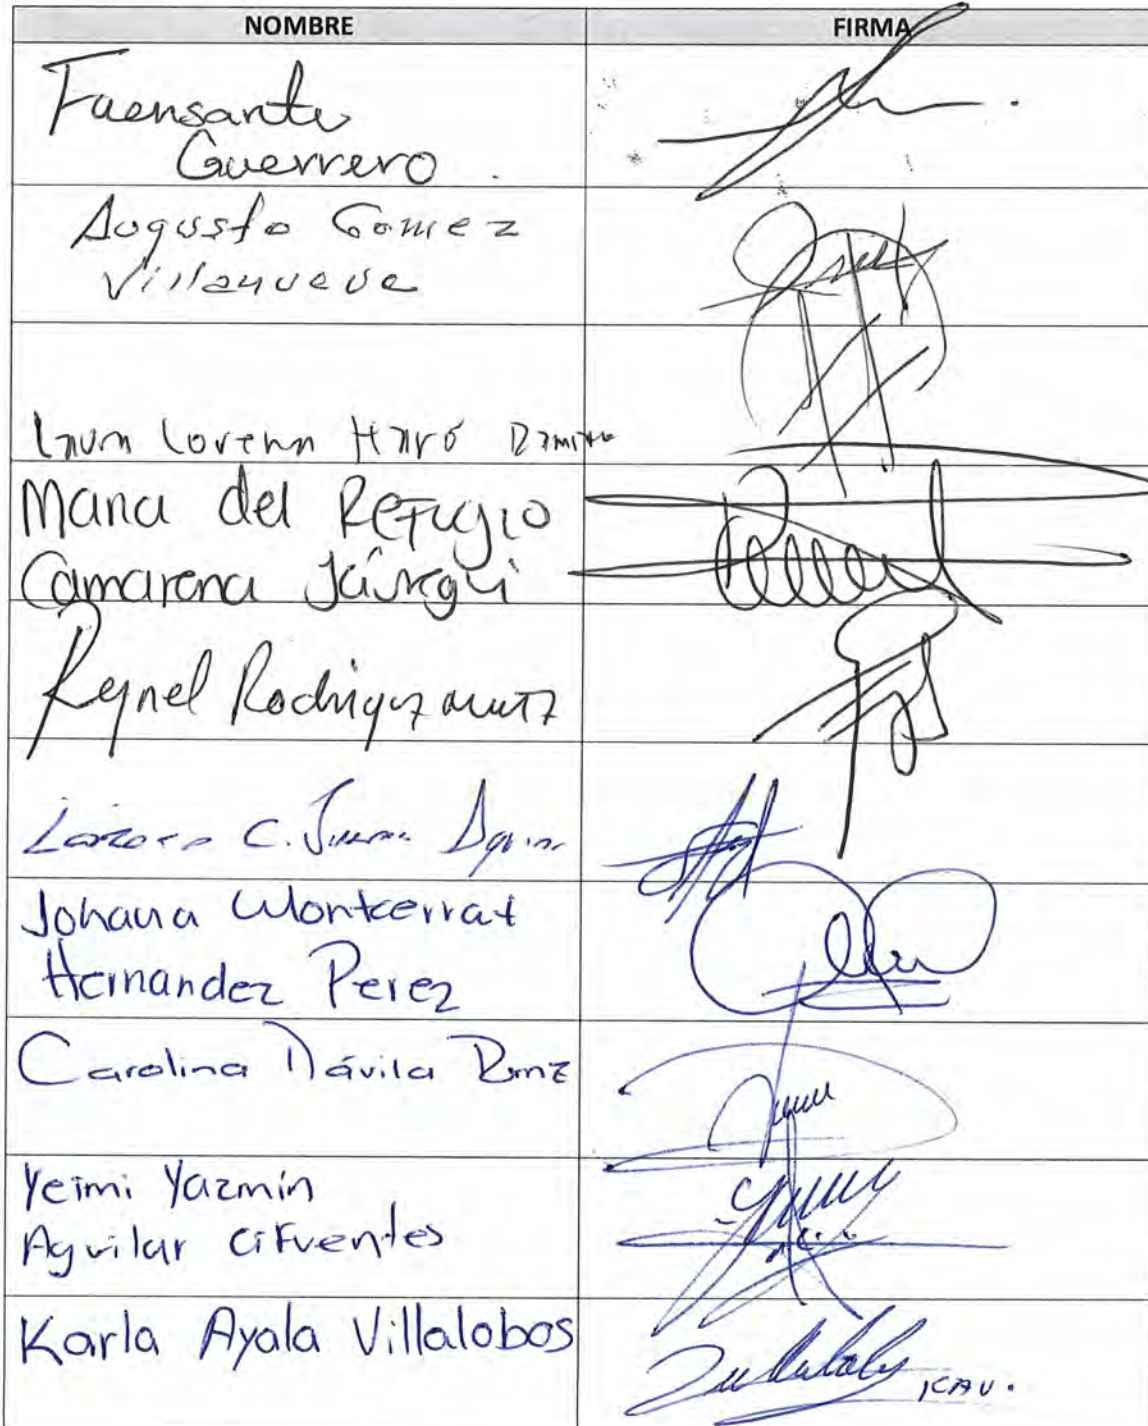 NOMBRE FIRMA
Fuensanta
Guerrero
Augusto Gomez
Villanueva
Laura Lorena Haro Ramírez
Maria del Refugio
Camarena Jáuregui
Reynel Rodríguez Muñoz
C. Jiménez Aquino
Johana Montcerrat
Hernandez Perez
Carolina Dávila Rmz
Yeimi Yazmín
Aguilar Cifuentes
Karla Ayala Villalobos
KAV.